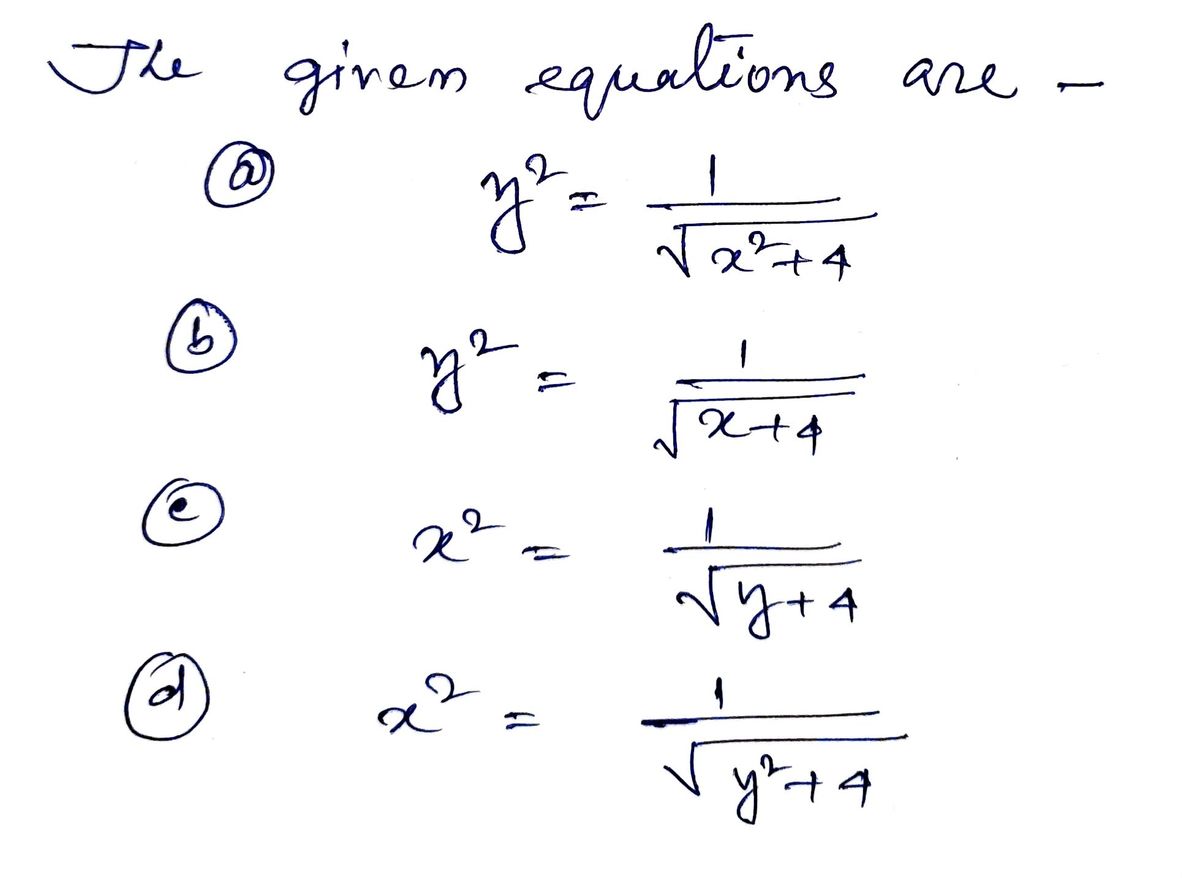 The given equations are -
(a) y² = 1/√(x²+4)
(b) y² = 1/√(x+4)
(c) x² = 1/√(y+4)
(d) x² = 1/√(y²+4)